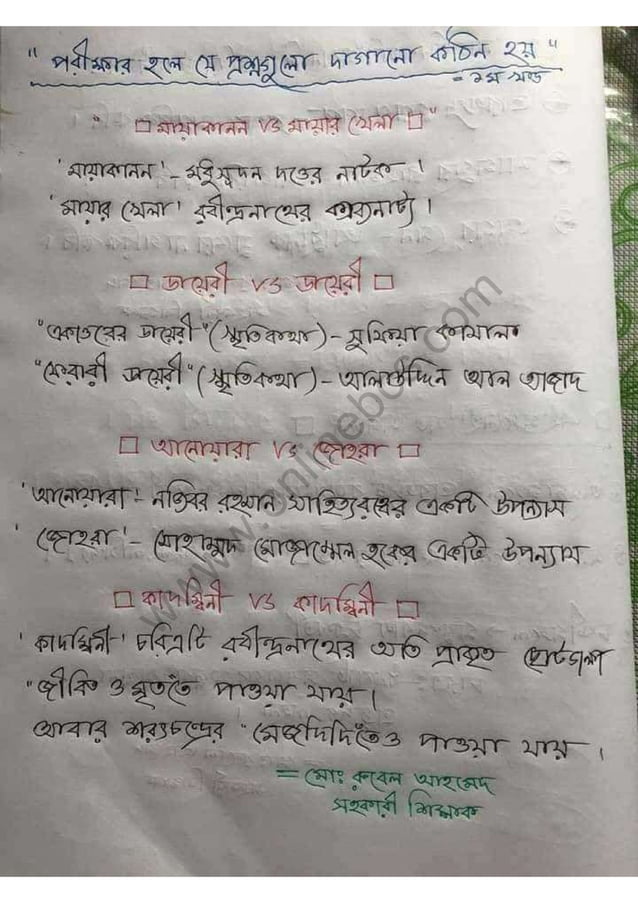 "পরীক্ষার হলে যে প্রশ্নগুলো দাগানো কঠিন হয়"
= ১ম খন্ড
" □ মায়াকানন VS মায়ার খেলা □ "
'মায়াকানন' - মধুসূদন দত্তের নাটক ।
'মায়ার খেলা' রবীন্দ্রনাথের কাব্যনাট্য ।
□ ডায়েরী VS ডায়েরী □
"একাত্তরের ডায়েরী" (স্মৃতিকথা) - সুফিয়া কামাল
"ফেরারী ডায়েরী" (স্মৃতিকথা) - আলাউদ্দিন আল আজাদ
□ আনোয়ারা VS জোহরা □
'আনোয়ারা' - নজিবর রহমান সাহিত্যরত্নের একটি উপন্যাস
'জোহরা' - মোহাম্মদ মোজাম্মেল হকের একটি উপন্যাস
□ কাদম্বিনী VS কাদম্বিনী □
'কাদম্বিনী' চরিত্রটি রবীন্দ্রনাথের অতি প্রাকৃত ছোটগল্প
"জীবিত ও মৃত'তে পাওয়া যায় ।
আবার শরৎচন্দ্রের "মেজদিদি'তেও পাওয়া যায় ।
= মোঃ রুবেল আহমেদ
সহকারী শিক্ষক
www.onlinebcs.com